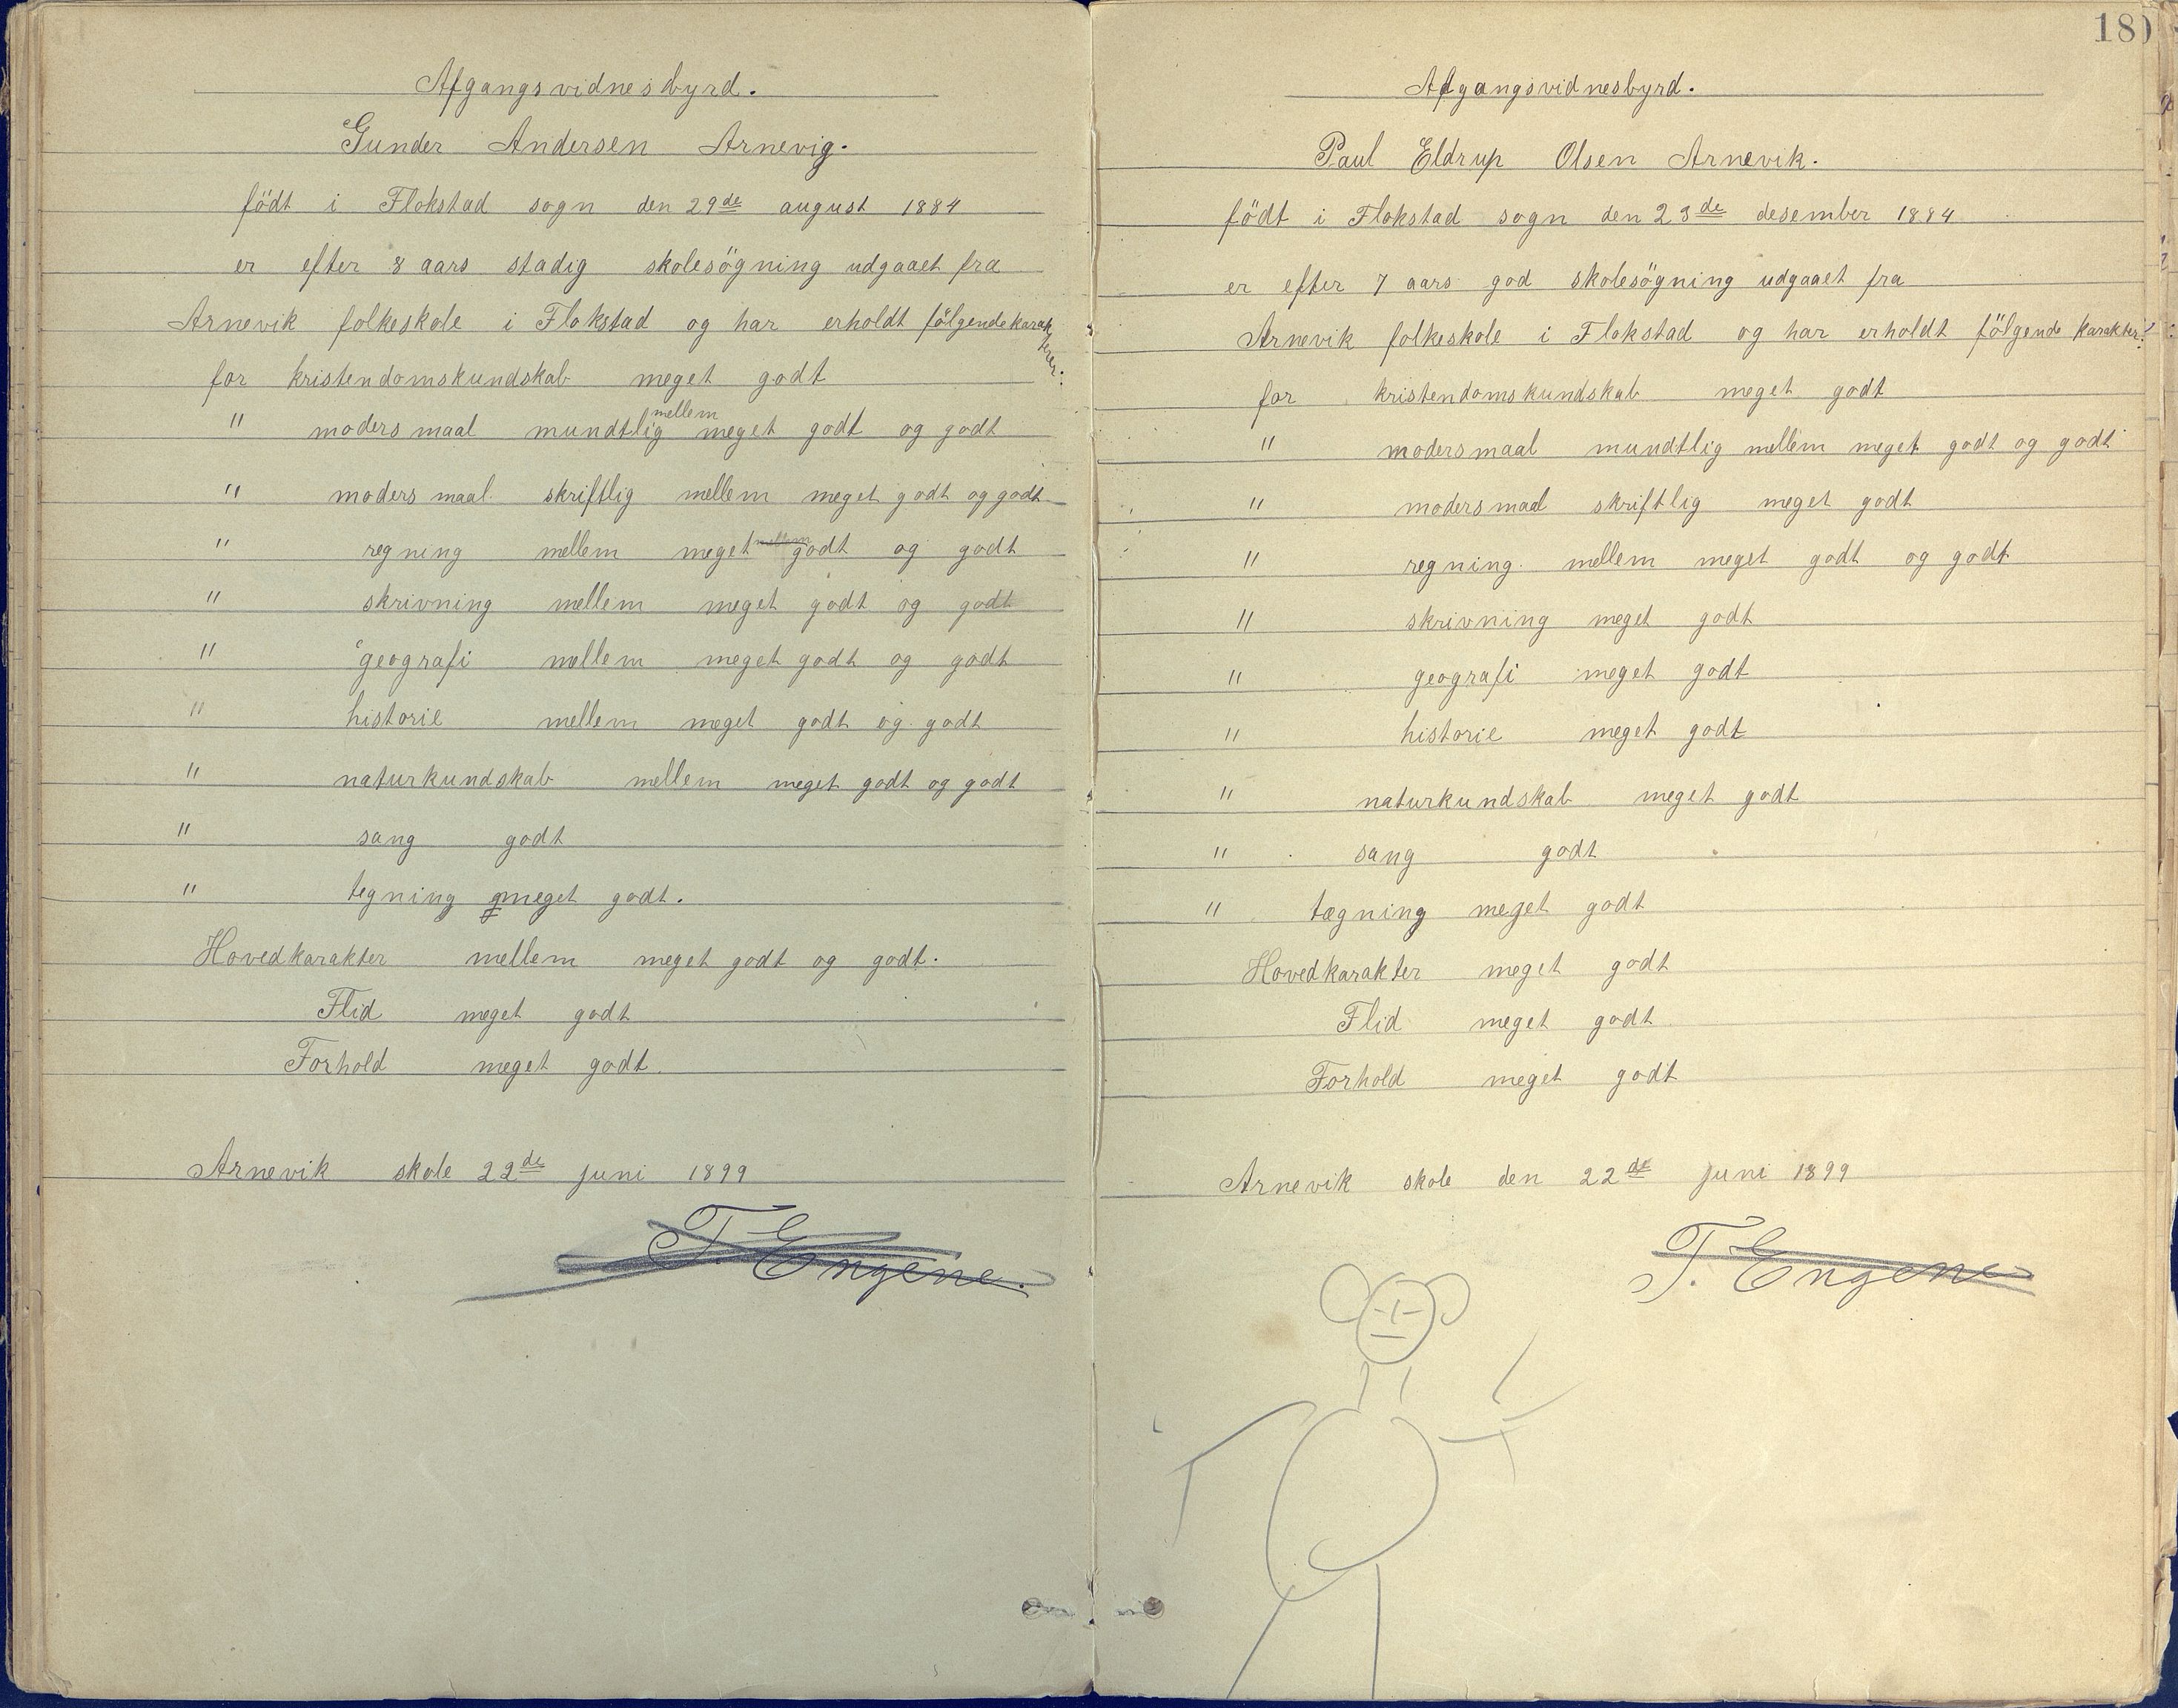 Afgangsvidnesbyrd.
Gunder Andersen Arnevig.
födt i Flokstad sogn den 29de august 1884
er efter 8 aars stadig skolesögning udgaaet fra
Arnevik folkeskole i Flokstad og har erholdt fölgende karakterer:
for kristendomskundskab meget godt
" modersmaal mundtlig mellem meget godt og godt
" modersmaal skriftlig mellem meget godt og godt
" regning mellem meget mellem godt og godt
" skrivning mellem meget godt og godt
" geografi mellem meget godt og godt
" historie mellem meget godt og godt
" naturkundskab mellem meget godt og godt
" sang godt
" tegning meget godt.
Hovedkarakter mellem meget godt og godt.
Flid meget godt
Forhold meget godt.
Arnevik skole 22de juni 1899
T. Engene.
180
Afgangsvidnesbyrd.
Paul Eldrup Olsen Arnevik.
födt i Flokstad sogn den 23de desember 1884
er efter 7 aars god skolesögning udgaaet fra
Arnevik folkeskole i Flokstad og har erholdt fölgende karakter:
for kristendomskundskab meget godt
" modersmaal mundtlig mellem meget godt og godt
" modersmaal skriftlig meget godt
" regning mellem meget godt og godt
" skrivning meget godt
" geografi meget godt
" historie meget godt
" naturkundskab meget godt
" sang godt
" tægning meget godt
Hovedkarakter meget godt
Flid meget godt
Forhold meget godt
Arnevik skole den 22de juni 1899
T. Engene